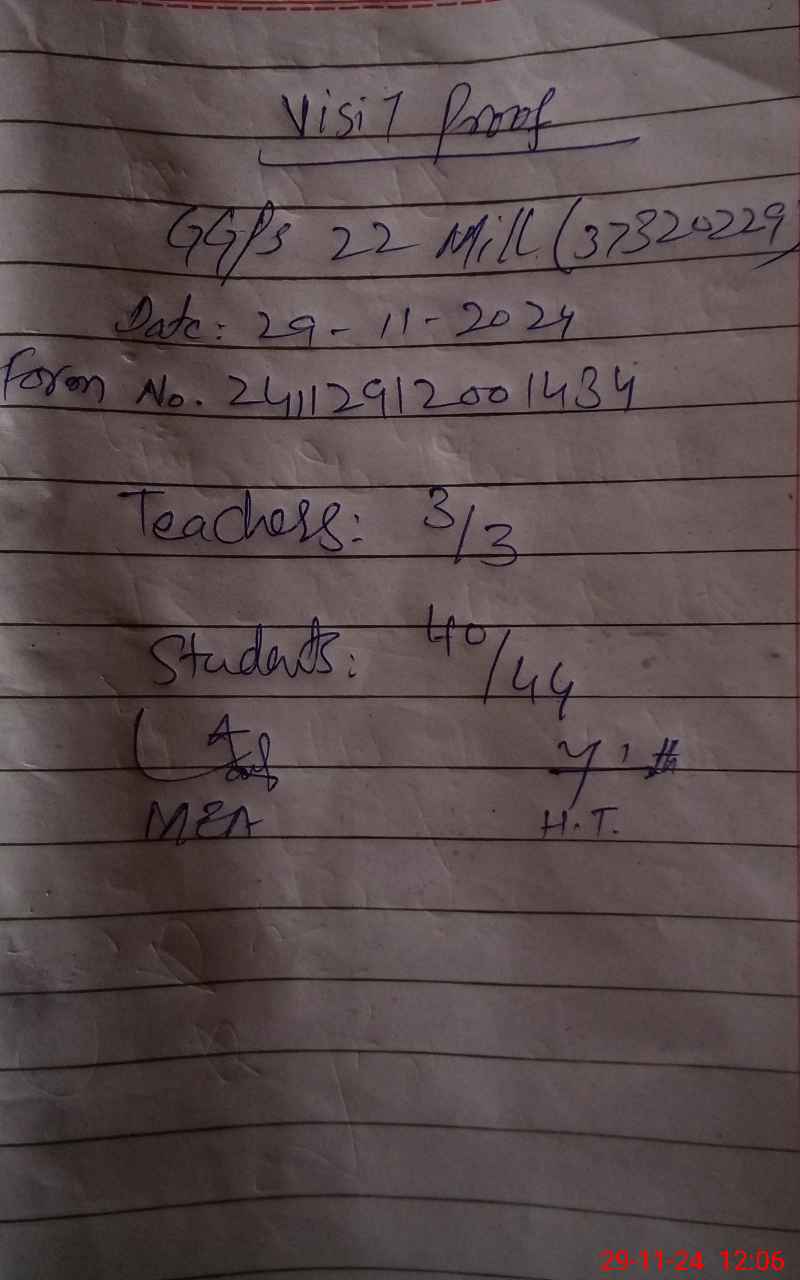 Visit Proof
GGPS 22 Mill (37320229)
Date: 29-11-2024
Form No. 241129120001434
Teachers: 3/3
Students: 40/44
MEA H.T.
29-11-24 12:06